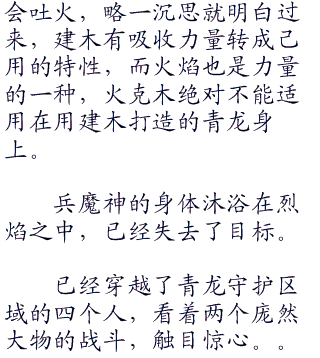 会吐火，略一沉思就明白过
来，建木有吸收力量转成己
用的特性，而火焰也是力量
的一种，火克木绝对不能适
用在用建木打造的青龙身
上。
兵魔神的身体沐浴在烈
焰之中，已经失去了目标。
已经穿越了青龙守护区
域的四个人，看着两个庞然
大物的战斗，触目惊心。。